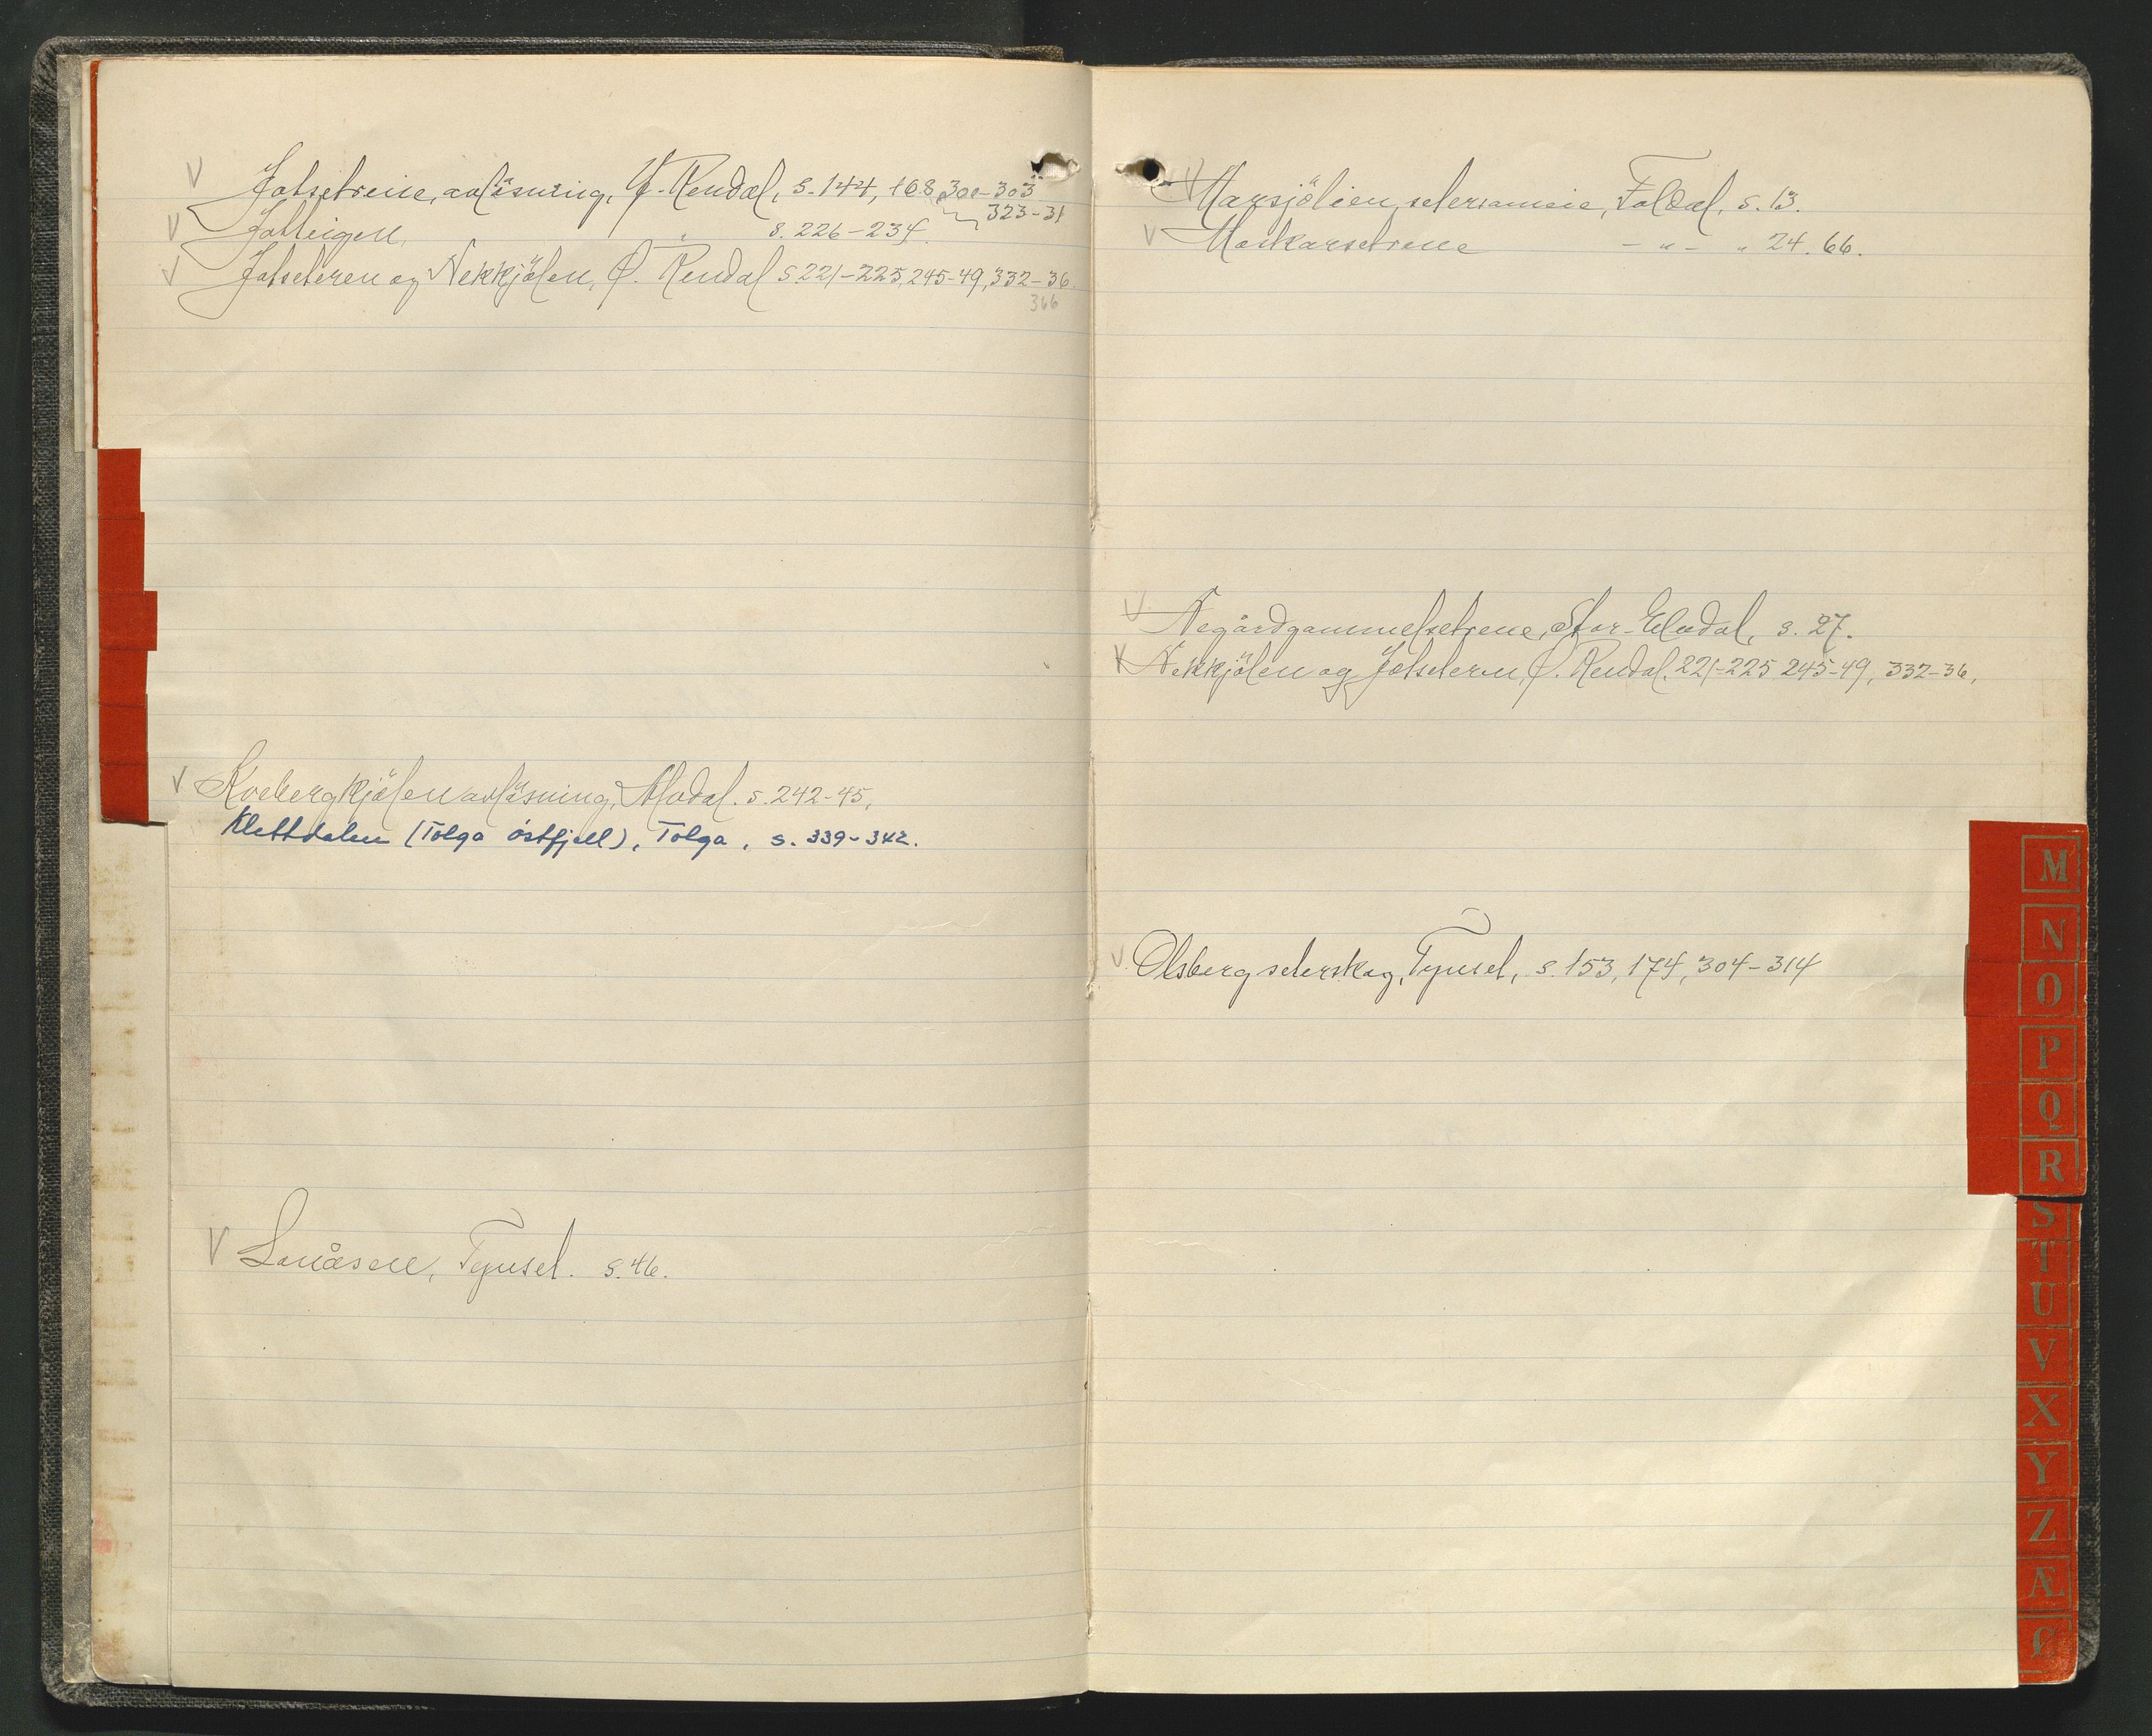 V Jotsetrene, avløsning, Ø. Rendal, s. 144, 168, 300-303
323-31
V Jotteigen, " s. 226-234.
V Jotseteren og Nekkjölen, Ø. Rendal s 221-225, 245-49, 332-36
366
V Kvebergkjölen avløsning, Alvdal. s. 242-45,
Klettdalen (Tolga östfjell), Tolga, s. 339-342.
V Lonåsen, Tynset. s. 46.
V Marsjölien, setersameie, Foldal, s. 13.
V Moskarsetrene - " - " 24. 66.
V Negårdgammelsetrene, Stor-Elvdal, s. 27.
V Nekkjölen og Jotseteren, Ø. Rendal. 221-225 245-49, 332-36,
V Olsberg seterskog, Tynset, s. 153, 174, 304-314
M
N
O
P
Q
R
S
T
U
V
X
Y
Z
Æ